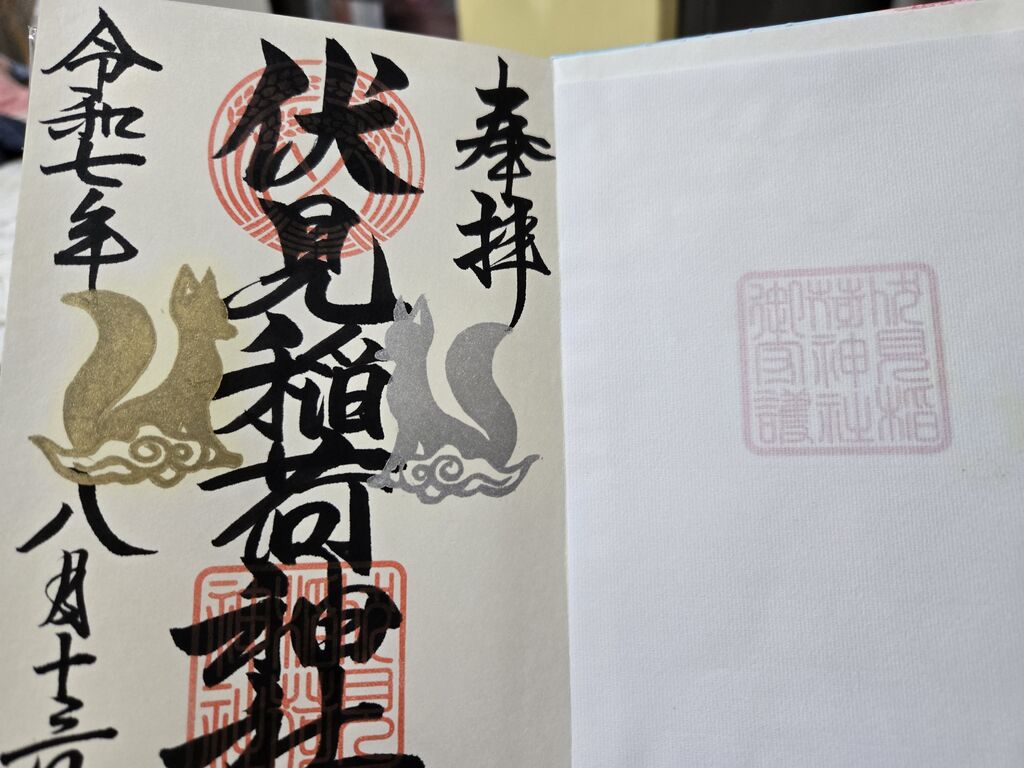 伏見稲
荷神社
御守護
奉拝
伏見稲荷神社
令和七年八月十三日
伏見
稲荷
神社